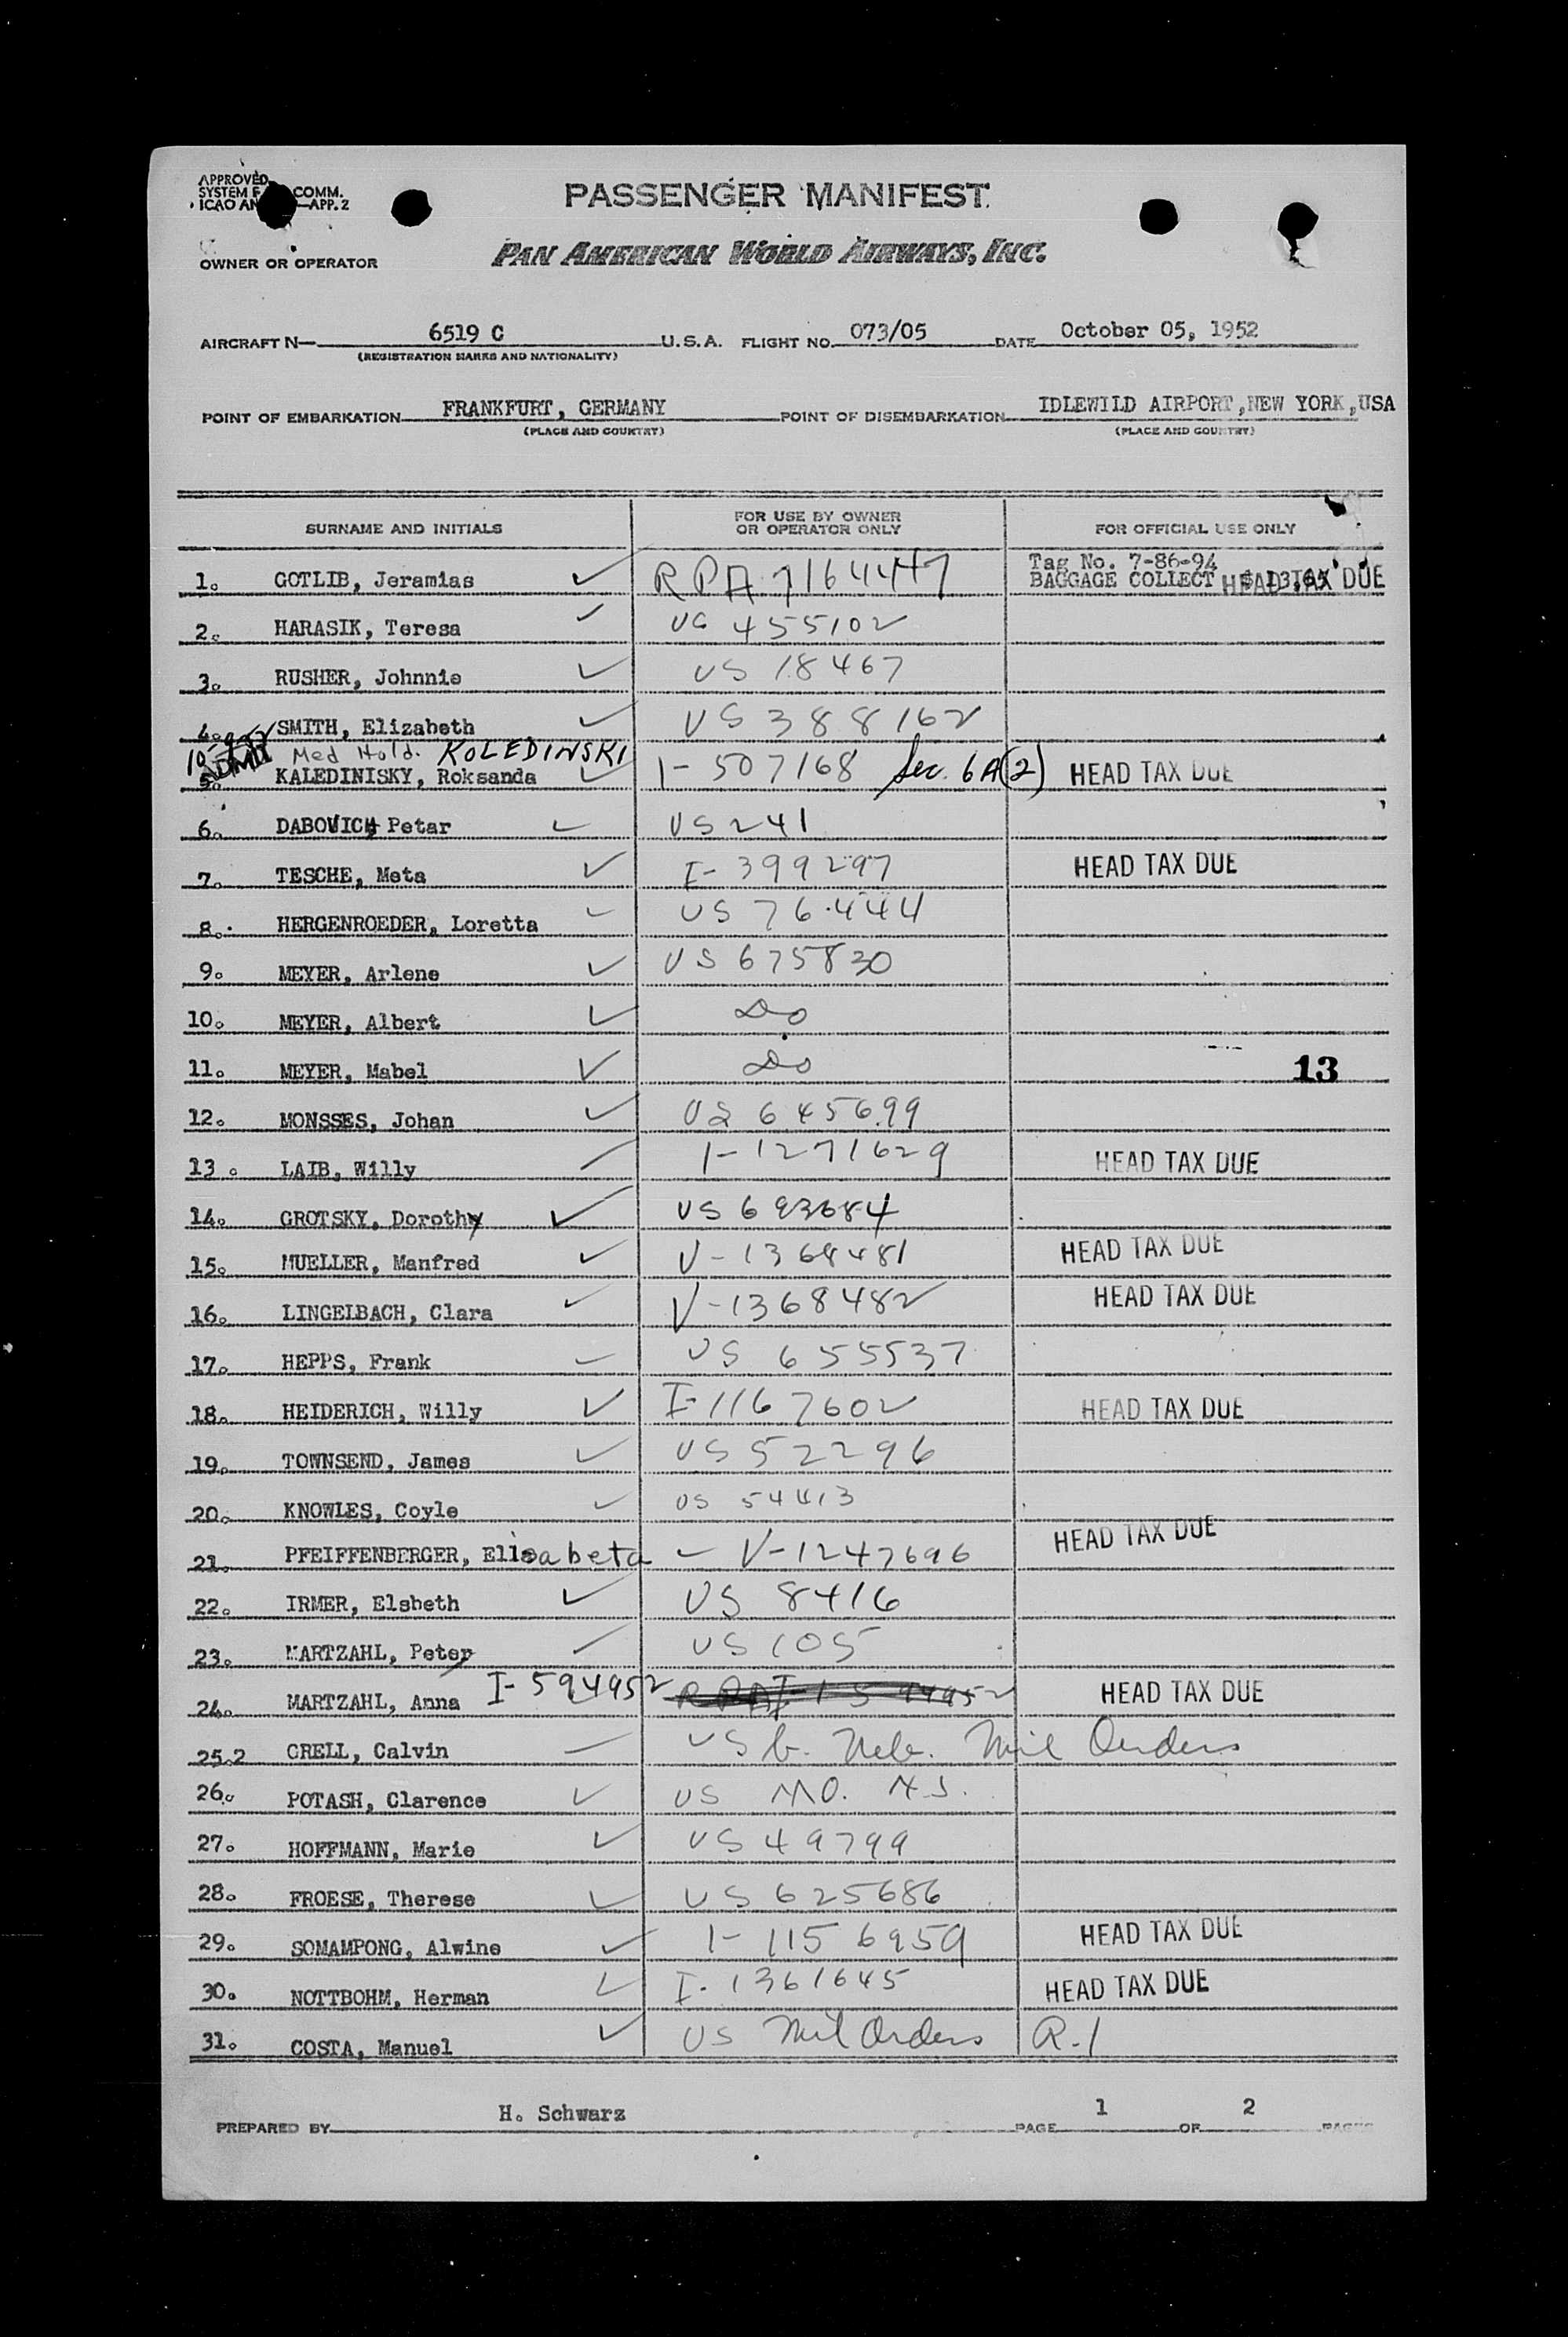 APPROVED
SYSTEM COMM.
ICAO APP. 2
PASSENGER MANIFEST
PAN AMERICAN WORLD AIRWAYS, INC.
OWNER OR OPERATOR
AIRCRAFT N— 6519 C U.S.A. FLIGHT NO. 073/05 DATE October 05, 1952
(REGISTRATION MARKS AND NATIONALITY)
POINT OF EMBARKATION FRANKFURT, GERMANY POINT OF DISEMBARKATION IDLEWILD AIRPORT, NEW YORK, USA
(PLACE AND COUNTRY) (PLACE AND COUNTRY)
SURNAME AND INITIALS FOR USE BY OWNER OR OPERATOR ONLY FOR OFFICIAL USE ONLY
Tag No. 7-86-94
1. GOTLIB, Jeramias RPA 7164447 BAGGAGE COLLECT HEAD TAX DUE
2. HARASIK, Teresa US 455102
3. RUSHER, Johnnie US 18467
4. SMITH, Elizabeth US 388162
Med Hold. KOLEDINSKI
5. KALEDINISKY, Roksanda I- 507168 Sec. 6A(2) HEAD TAX DUE
6. DABOVICH Petar US 241
7. TESCHE, Meta I- 399297 HEAD TAX DUE
8. HERGENROEDER, Loretta US 76444
9. MEYER, Arlene US 675830
10. MEYER, Albert Do
11. MEYER, Mabel Do 13
12. MONSSES, Johan US 645699
13. LAIB, Willy I-1271629 HEAD TAX DUE
14. GROTSKY, Dorothy US 693684
15. MUELLER, Manfred V-1368481 HEAD TAX DUE
16. LINGELBACH, Clara V-1368482 HEAD TAX DUE
17. HEPPS, Frank US 655537
18. HEIDERICH, Willy I-1167602 HEAD TAX DUE
19. TOWNSEND, James US 52296
20. KNOWLES, Coyle US 54413
21. PFEIFFENBERGER, Elisabeta V-1247696 HEAD TAX DUE
22. IRMER, Elsbeth US 8416
23. MARTZAHL, Peter US 105
24. MARTZAHL, Anna I- 594952 HEAD TAX DUE
25.2 CRELL, Calvin US b. Neb. Mil Orders
26. POTASH, Clarence US MO. N.J.
27. HOFFMANN, Marie US 49799
28. FROESE, Therese US 625686
29. SOMAMPONG, Alwine I- 1156959 HEAD TAX DUE
30. NOTTBOHM, Herman I-1361645 HEAD TAX DUE
31. COSTA, Manuel US Mil Orders R.1
PREPARED BY H. Schwarz PAGE 1 OF 2 PAGES